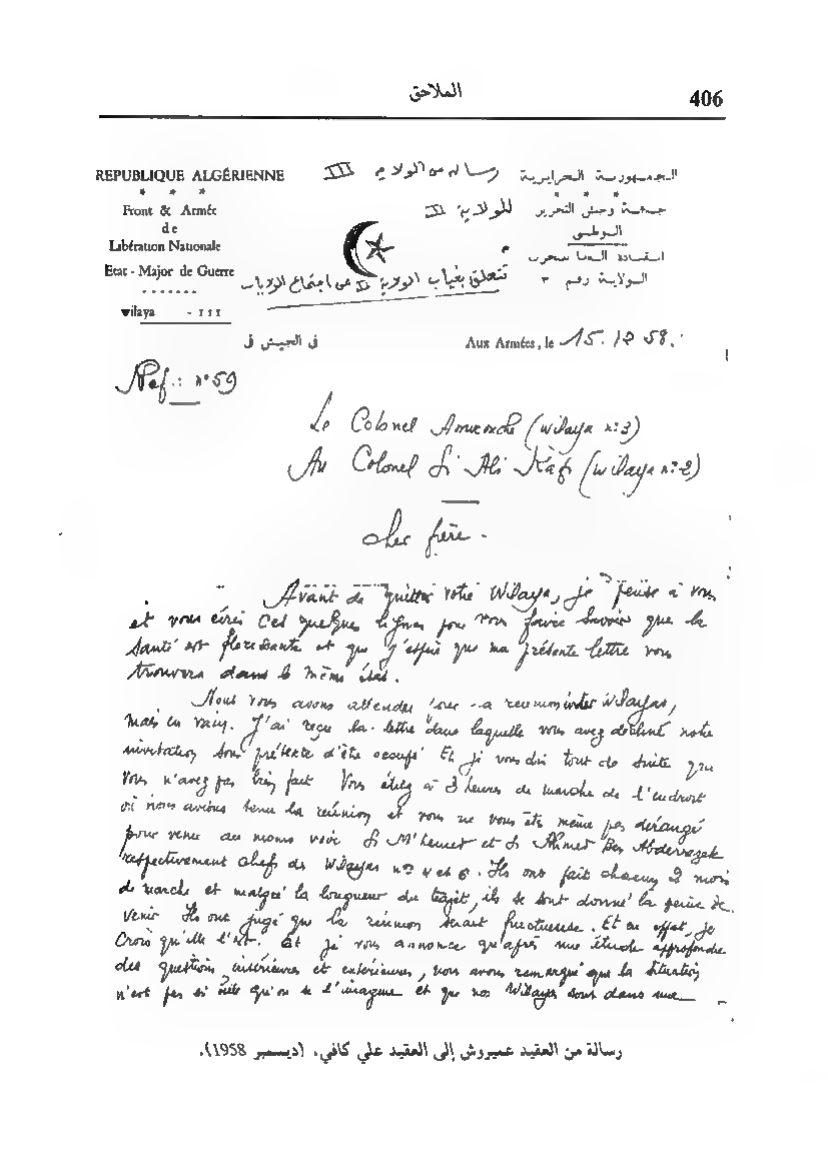 الملاحق
406
REPUBLIQUE ALGÉRIENNE
* * *
Front & Armée
de
Libération Nationale
Etat - Major de Guerre
Wilaya - III
رسالة من الولاية III
للولاية II
تتعلق بغياب الولاية II عن اجتماع الولايات
الجمهورية الجزايرية
* * *
جبهة وجيش التحرير
الوطني
الولاية رقم ٣
في الجيش في
Aux Armées, le 15.12.58.
Ref.: n° 59
Le Colonel Amirouche (Wilaya n° 3)
Au Colonel Si Ali Kafi (Wilaya n° 2)
Cher frère -
Avant de quitter votre Wilaya, je pense à vous
et vous écris ces quelques lignes pour vous faire savoir que la
santé est florissante et que j'espère que ma présente lettre vous
trouvera dans le même état.
Nous vous avons attendu pour la réunion inter Wilayas,
mais en vain. J'ai reçu la lettre dans laquelle vous avez décliné notre
invitation sous prétexte d'être occupé. Et je vous dis tout de suite que
vous n'avez pas bien fait. Vous étiez à 3 heures de marche de l'endroit
où nous avions tenu la réunion et vous ne vous êtes même pas dérangé
pour venir au moins voir Si M'hamed et Si Ahmed Ben Abderrezak
respectivement chefs des Wilayas n° 4 et 6. Ils ont fait chacun 2 mois
de marche et malgré la longueur du trajet, ils se sont donné la peine de
venir. Ils ont jugé que la réunion serait fructueuse. Et en effet, je
crois qu'elle l'est. Et je vous annonce qu'après une étude approfondie
des questions intérieures et extérieures, nous avons remarqué que la situation
n'est pas si qu'on se l'imagine et que nos Wilayas sont dans une
رسالة من العقيد عميروش إلى العقيد علي كافي. (ديسمبر 1958).